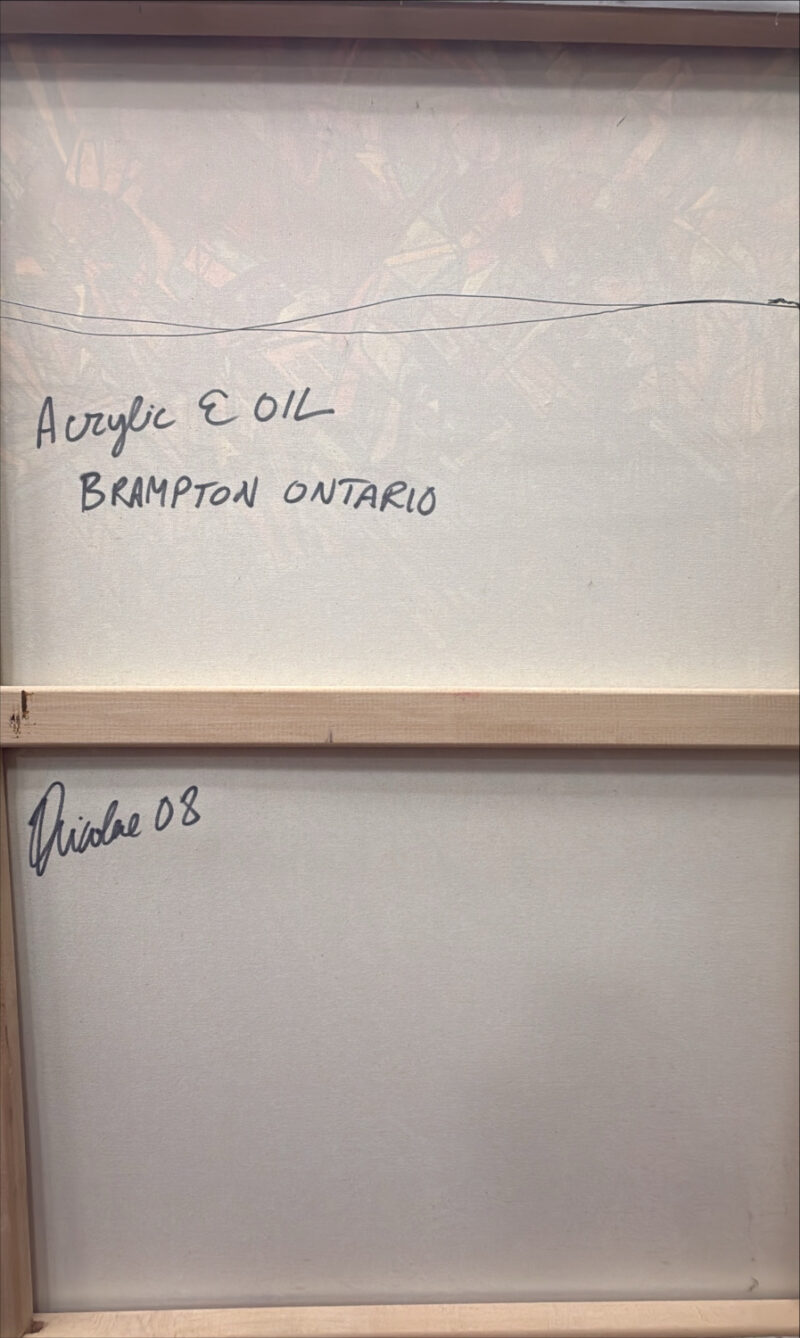 Acrylic & OIL
BRAMPTON ONTARIO
Nicolae 08